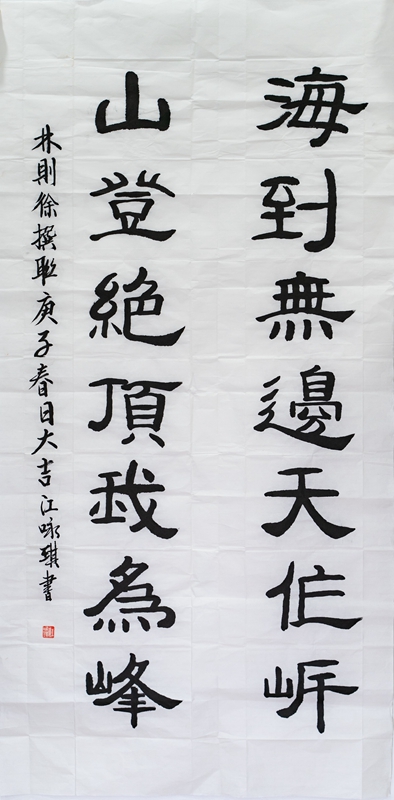 海到無邊天作岸
山登絕頂我為峰
林則徐撰聯庚子春日大吉江咏琪書